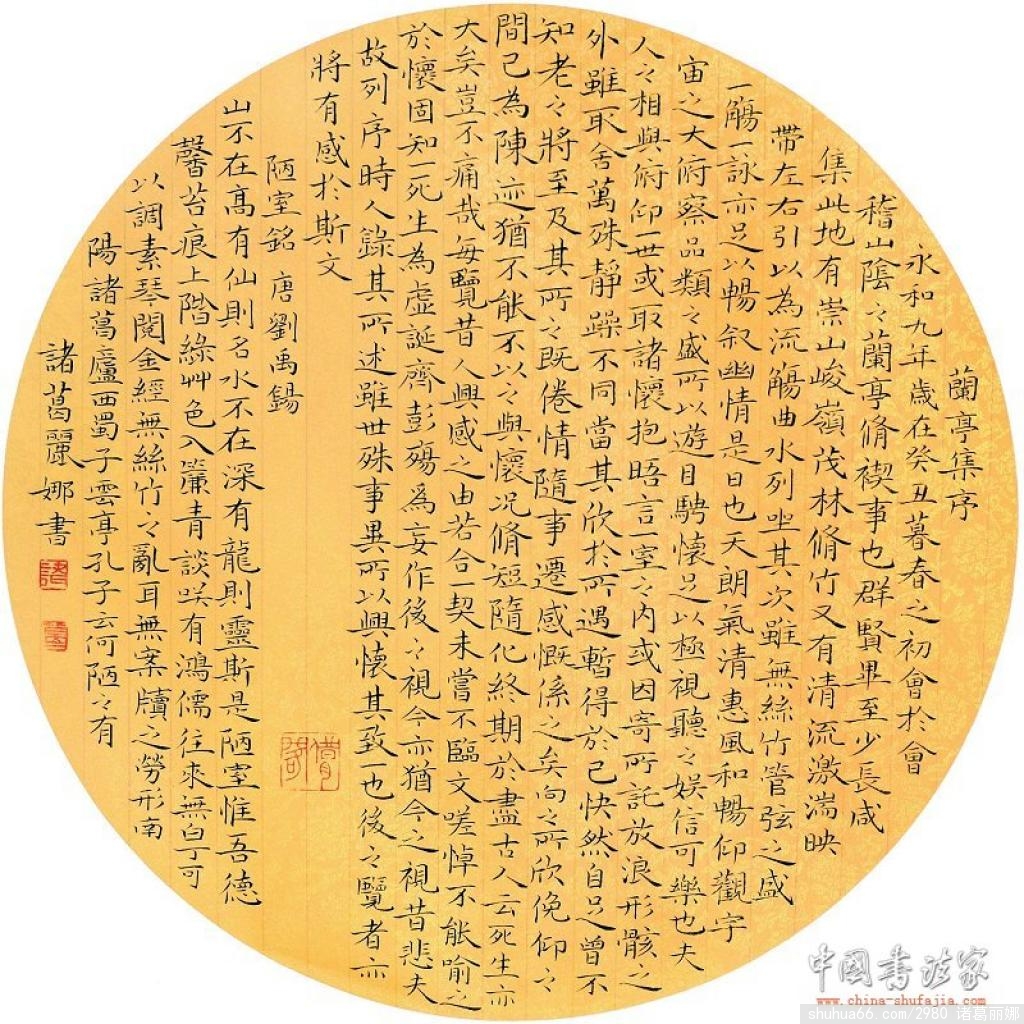 蘭亭集序
永和九年歲在癸丑暮春之初會於會
稽山陰之蘭亭脩禊事也群賢畢至少長咸
集此地有崇山峻嶺茂林脩竹又有清流激湍映
帶左右引以為流觴曲水列坐其次雖無絲竹管弦之盛
一觴一詠亦足以暢叙幽情是日也天朗氣清惠風和暢仰觀宇
宙之大俯察品類之盛所以遊目騁懷足以極視聽之娛信可樂也夫
人之相與俯仰一世或取諸懷抱晤言一室之內或因寄所託放浪形骸之
外雖取舍萬殊靜躁不同當其欣於所遇暫得於己快然自足曾不
知老之將至及其所之既倦情隨事遷感慨係之矣向之所欣俛仰之
間已為陳迹猶不能不以之興懷况脩短隨化終期於盡古人云死生亦
大矣豈不痛哉每覽昔人興感之由若合一契未嘗不臨文嗟悼不能喻之
於懷固知一死生為虛誕齊彭殤為妄作後之視今亦猶今之視昔悲夫
故列序時人錄其所述雖世殊事異所以興懷其致一也後之覽者亦
將有感於斯文
陋室銘 唐劉禹錫
山不在高有仙則名水不在深有龍則靈斯是陋室惟吾德
馨苔痕上階綠艸色入簾青談咲有鴻儒往來無白丁可
以調素琴閱金經無絲竹之亂耳無案牘之勞形南
陽諸葛廬西蜀子雲亭孔子云何陋之有
諸葛麗娜書
中國書法家
www.china-shufajia.com
shuhua66.com/2980 诸葛丽娜